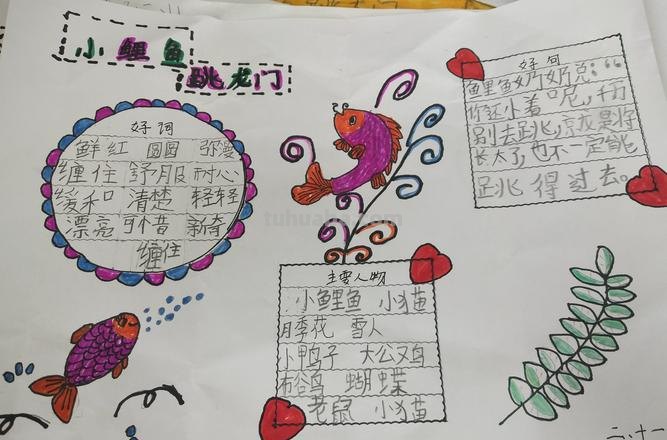 小鲤鱼
跳龙门
好词
鲜红 圆圆 弥漫
缠住 舒服 树心
缓和 清楚 轻轻
漂亮 可惜 新奇
缠住
tuhuabao.com
好句
鲤鱼奶奶说：“
你还小着呢，千万
别去跳，就是你
长大了，也不一定能
跳得过去。
主要人物
小鲤鱼 小猫
月季花 雪人
小鸭子 大公鸡
布谷鸟 蝴蝶
老鼠 小猫
二、十一